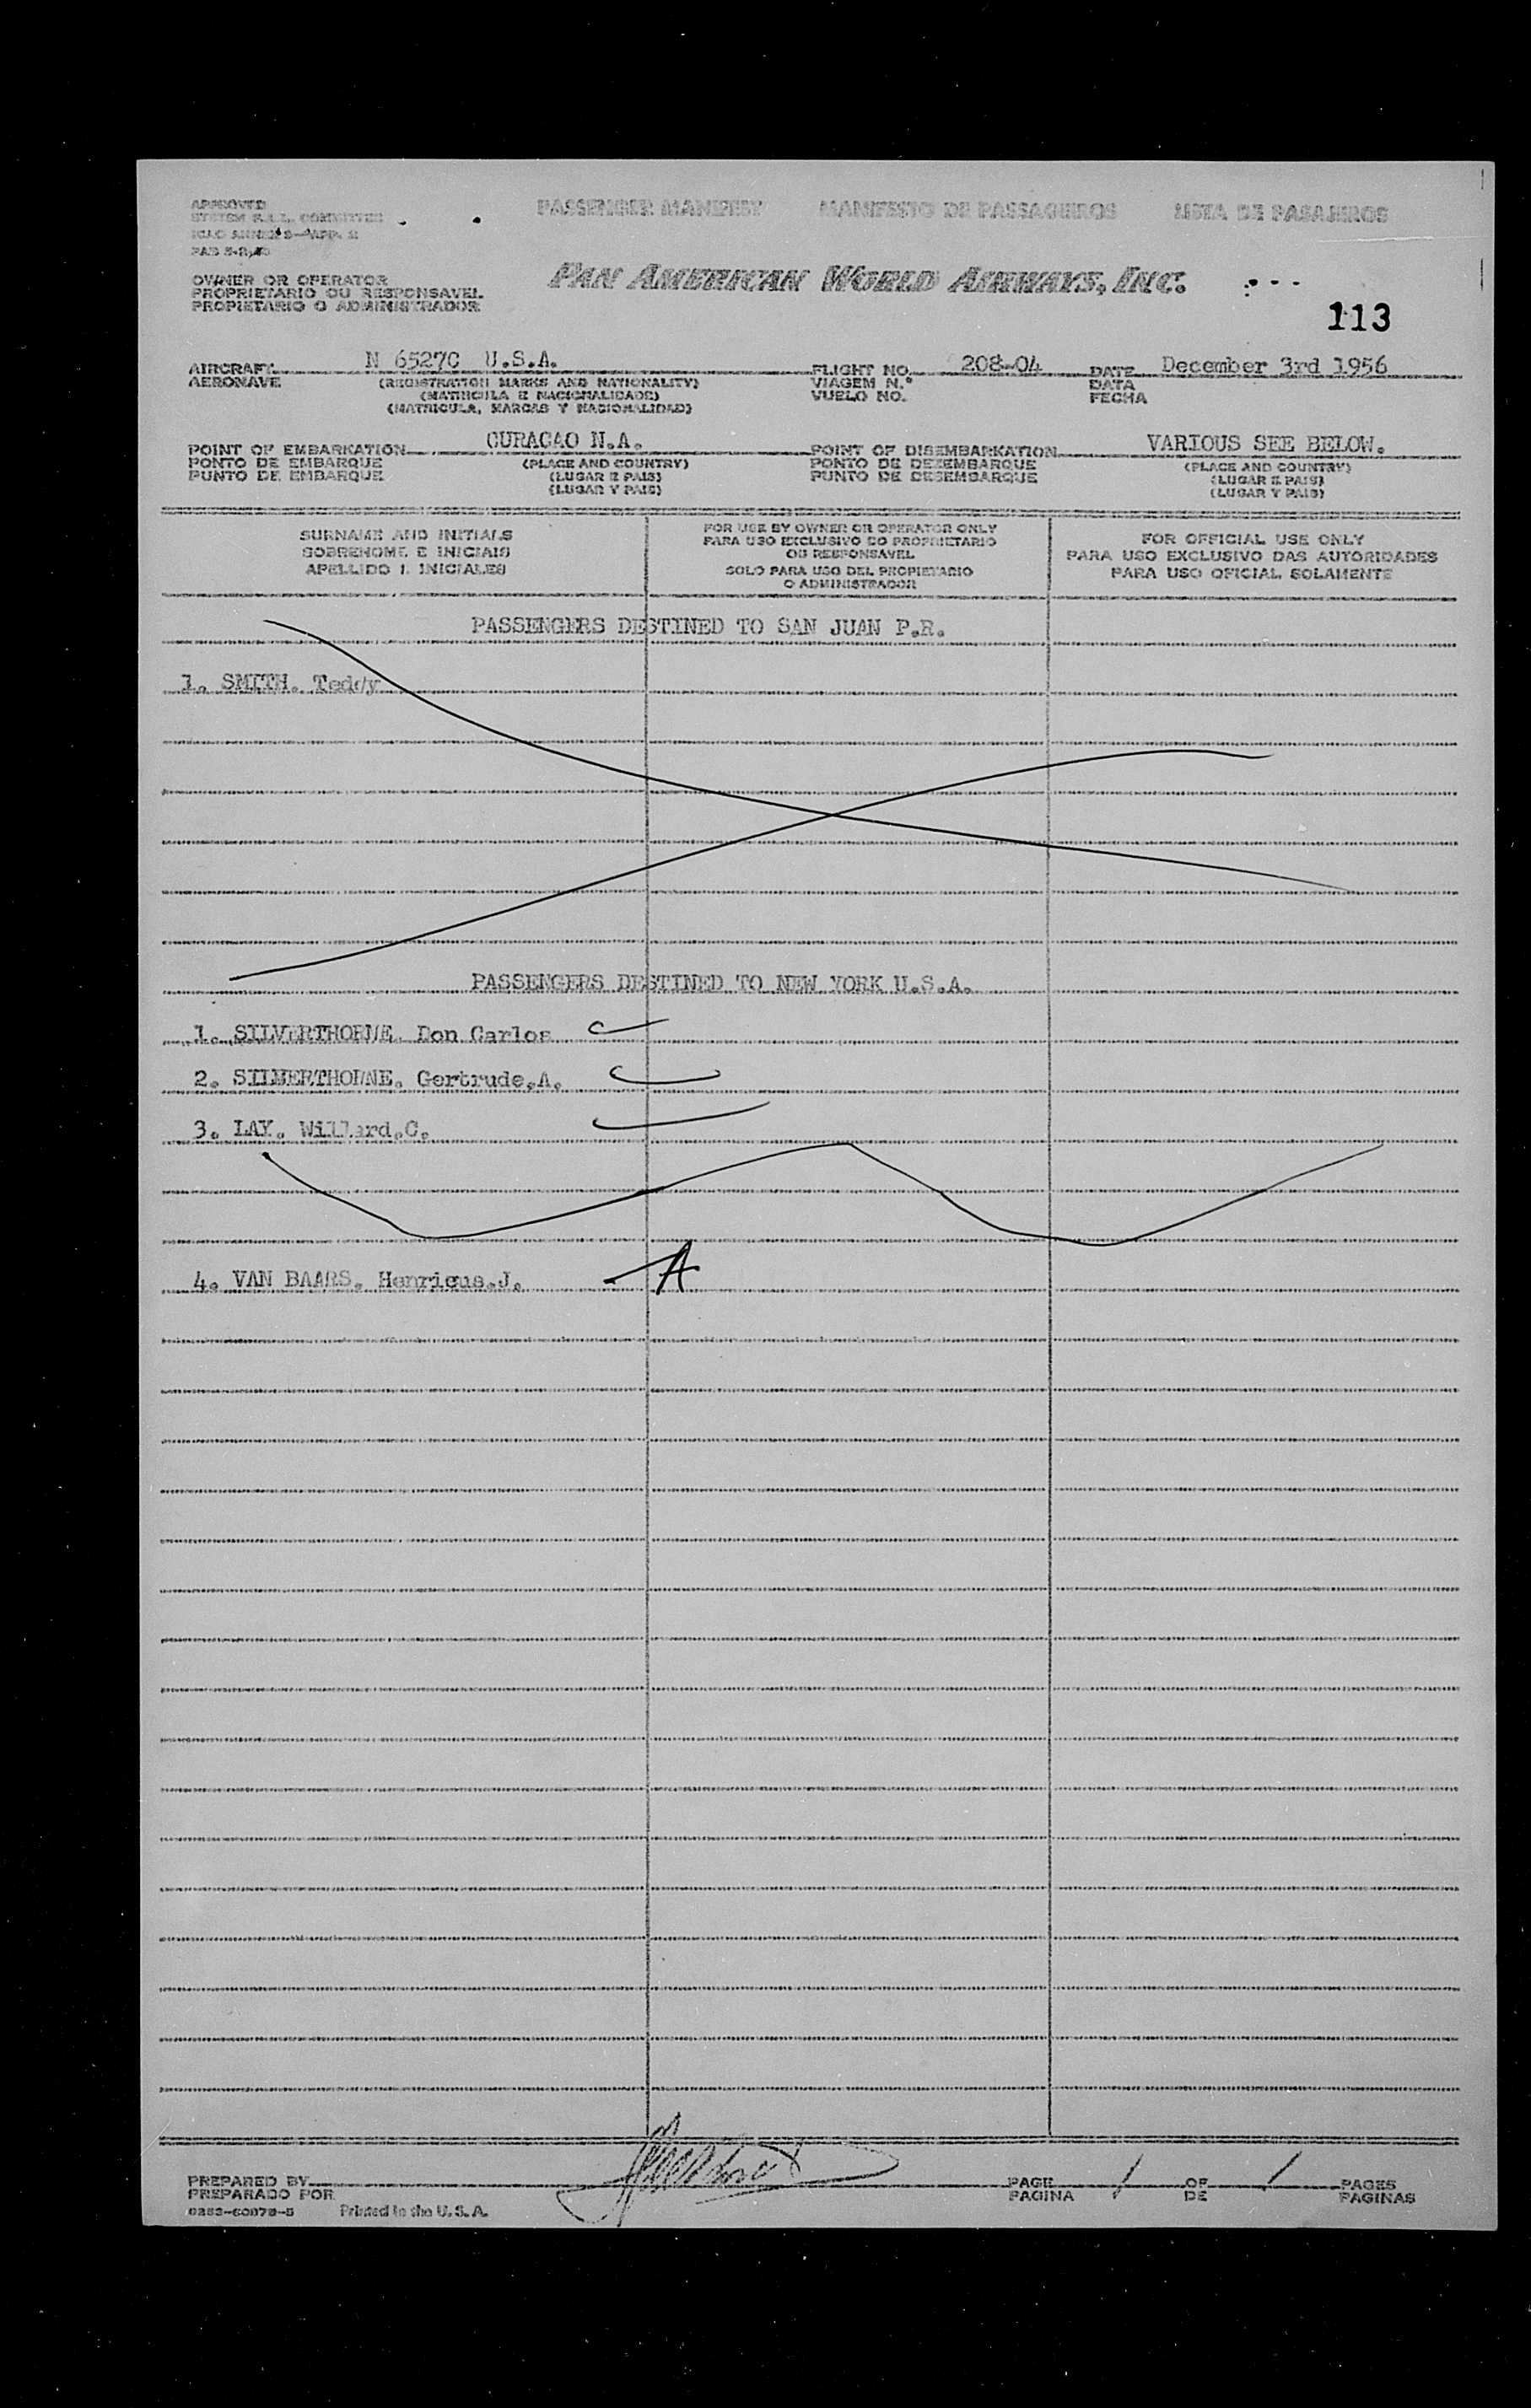 APPROVED
SYSTEM F.A.L. COMMITTEE
ICAO ANNEX 9—APP. 2
OWNER OR OPERATOR
PROPRIETARIO OU RESPONSAVEL
PROPIETARIO O ADMINISTRADOR
PASSENGER MANIFEST MANIFESTO DE PASSAGEIROS LISTA DE PASAJEROS
PAN AMERICAN WORLD AIRWAYS, INC.
113
AIRCRAFT N 6527C U.S.A. FLIGHT NO. 208-04 DATE December 3rd 1956
AERONAVE (REGISTRATION MARKS AND NATIONALITY) VIAGEM N.° DATA
(MATRICULA E NACIONALIDADE) VUELO NO. FECHA
(MATRICULA, MARCAS Y NACIONALIDAD)
POINT OF EMBARKATION CURACAO N.A. POINT OF DISEMBARKATION VARIOUS SEE BELOW.
PONTO DE EMBARQUE (PLACE AND COUNTRY) PONTO DE DEZEMBARQUE (PLACE AND COUNTRY)
PUNTO DE EMBARQUE (LUGAR E PAIS) PUNTO DE DESEMBARQUE (LUGAR E PAIS)
(LUGAR Y PAIS) (LUGAR Y PAIS)
SURNAME AND INITIALS
SOBRENOME E INICIAIS
APELLIDO E INICIALES
FOR USE BY OWNER OR OPERATOR ONLY
PARA USO EXCLUSIVO DO PROPRIETARIO
OU RESPONSAVEL
SOLO PARA USO DEL PROPIETARIO
O ADMINISTRADOR
FOR OFFICIAL USE ONLY
PARA USO EXCLUSIVO DAS AUTORIDADES
PARA USO OFICIAL SOLAMENTE
PASSENGERS DESTINED TO SAN JUAN P.R.
1. SMITH. Teddy
PASSENGERS DESTINED TO NEW YORK U.S.A.
1. SILVERTHORNE. Don Carlos
2. SILVERTHORNE. Gertrude.A.
3. LAY. Willard.C.
4. VAN BAARS. Henricus.J. A
PREPARED BY PAGE 1 OF 1 PAGES
PREPARADO POR PAGINA DE PAGINAS
Printed in the U.S.A.